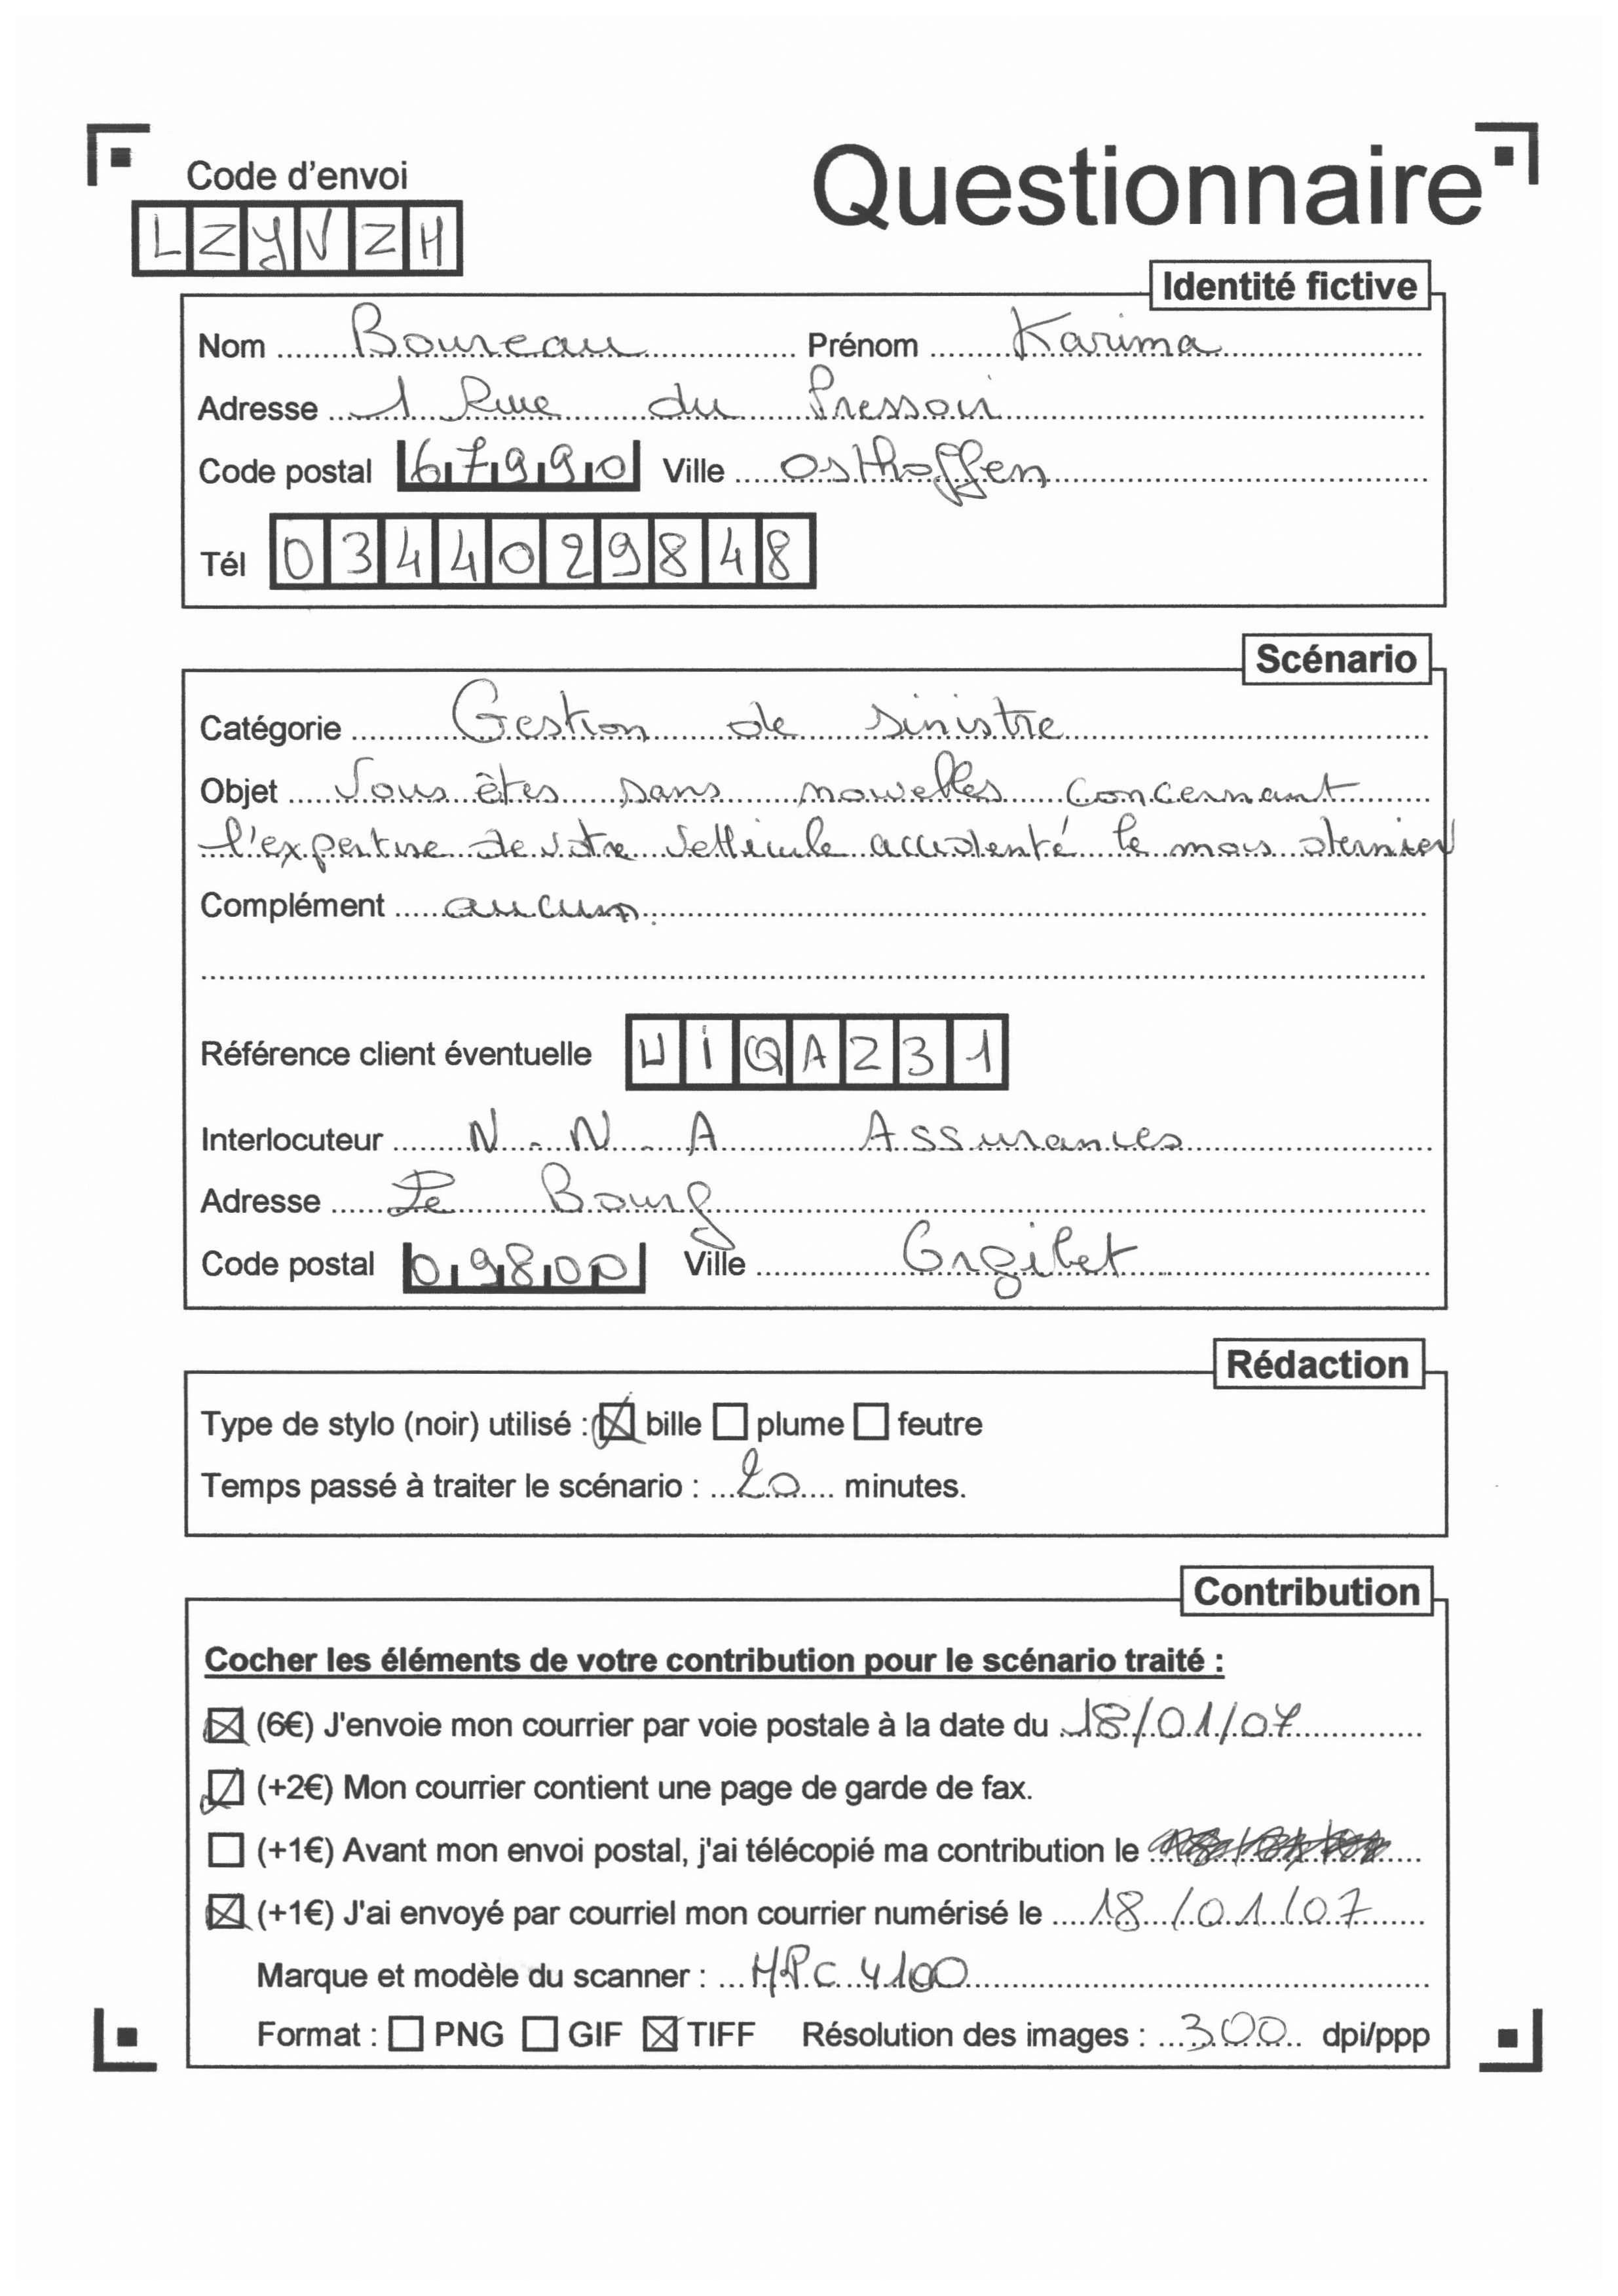 Code d'envoi
Questionnaire
LZYVZH
Identité fictive
Nom Boureau Prénom Karima
Adresse 1 Rue du Pressoir
Code postal 67990 Ville Osthoffen
Tél 0344029848
Scénario
Catégorie Gestion de sinistre
Objet Vous êtes sans nouvelles concernant
l'expertise de votre véhicule accidenté le mois dernier
Complément aucun.
Référence client éventuelle UIQA231
Interlocuteur N.N.A Assurances
Adresse Le Bourg
Code postal 09800 Ville
Rédaction
Type de stylo (noir) utilisé : bille plume feutre
Temps passé à traiter le scénario : 20 minutes.
Contribution
Cocher les éléments de votre contribution pour le scénario traité :
(6€) J'envoie mon courrier par voie postale à la date du 18/01/07
(+2€) Mon courrier contient une page de garde de fax.
(+1€) Avant mon envoi postal, j'ai télécopié ma contribution le
(+1€) J'ai envoyé par courriel mon courrier numérisé le 18/01/07
Marque et modèle du scanner : HPC 4100
Format : PNG GIF TIFF Résolution des images : 300 dpi/ppp